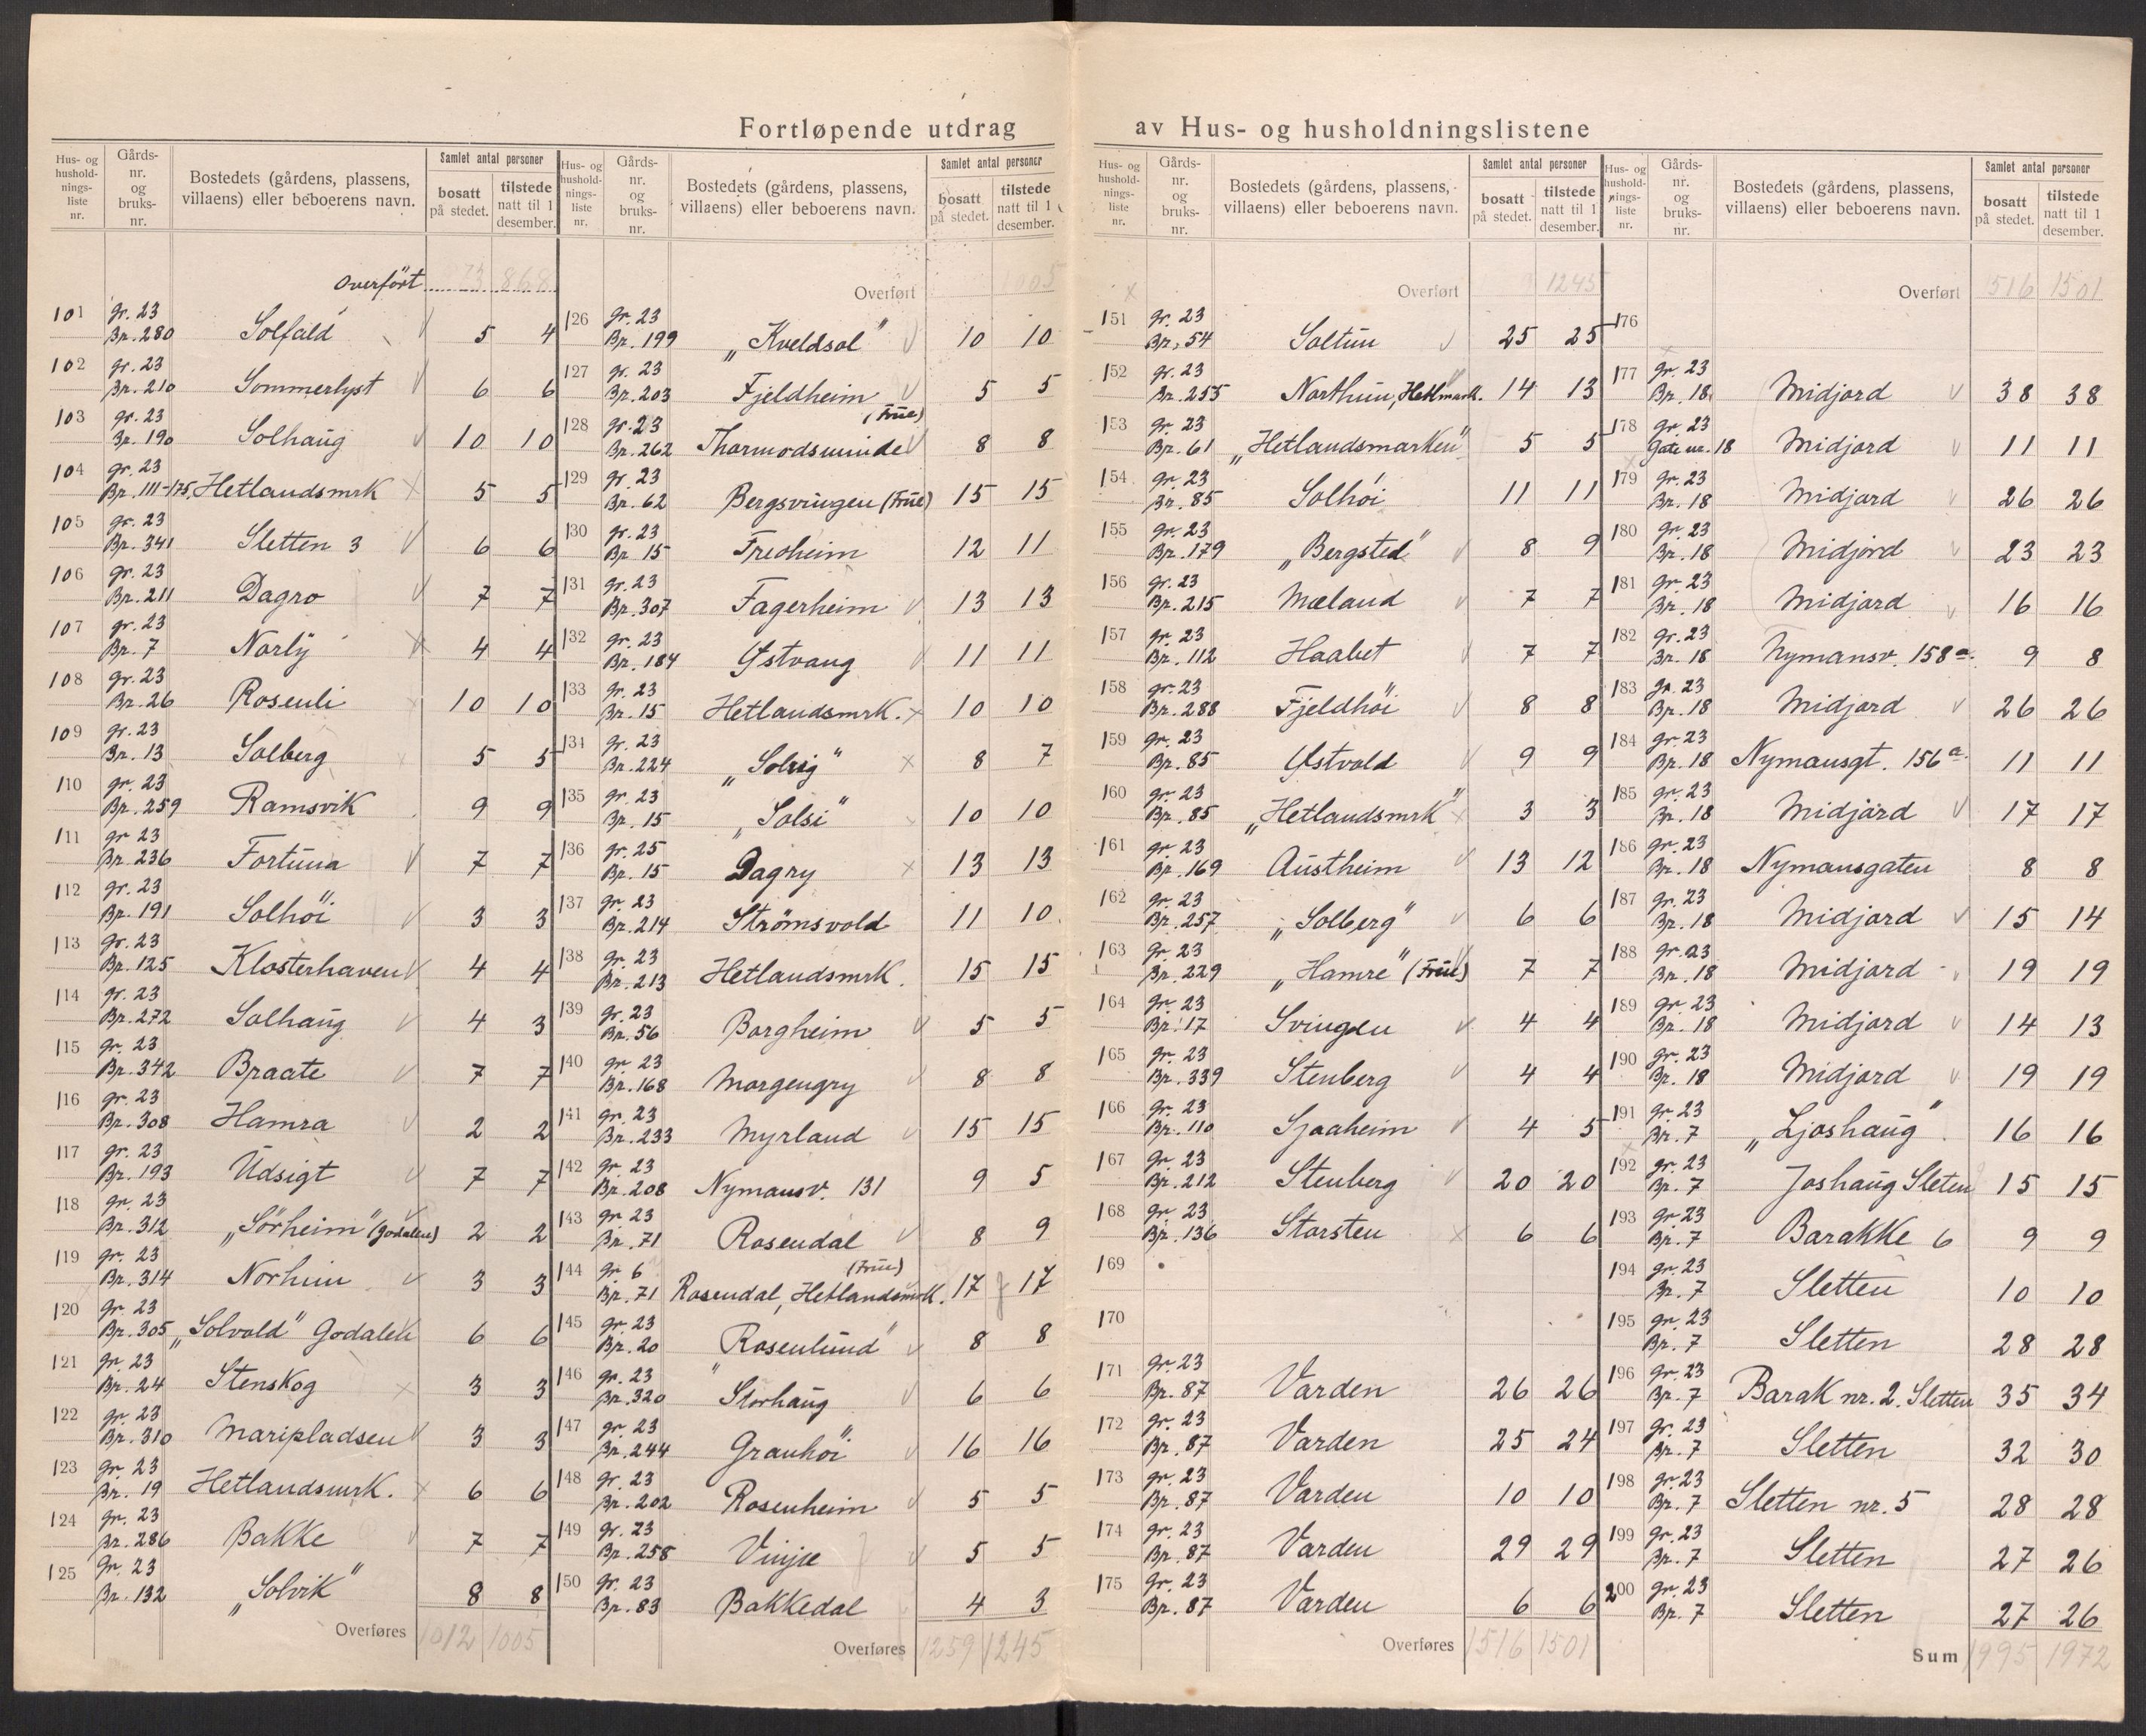 Fortløpende utdrag av Hus- og husholdningslistene
Hus- og husholdningsliste nr. | Gårds-nr. og bruks-nr. | Bostedets (gårdens, plassens, villaens) eller beboerens navn. | Samlet antal personer | bosatt på stedet. | tilstede natt til 1 desember.
Overført 868
101 gr. 23 Br. 280 Solfald 5 4
102 gr. 23 Br. 210 Sommerlyst 6 6
103 gr. 23 Br. 190 Solhaug 10 10
104 gr. 23 Br. 111-175, Hetlandsmrk 5 5
105 gr. 23 Br. 341 Sletten 3 6 6
106 gr. 23 Br. 211 Dagro 7 7
107 gr. 23 Br. 7 Norly 4 4
108 gr. 23 Br. 26 Rosenli 10 10
109 gr. 23 Br. 13 Solberg 5 5
110 gr. 23 Br. 259 Ramsvik 9 9
111 gr 23 Br. 236 Fortuna 7 7
112 gr. 23 Br. 191 Solhöi 3 3
113 gr. 23 Br. 125 Klosterhaven 4 4
114 gr. 23 Br. 272 Solhaug 4 3
115 gr. 23 Br. 342 Braate 7 7
116 gr. 23 Br. 308 Hamra 2 2
117 gr. 23 Br. 193 Udsigt 7 7
118 gr. 23 Br. 312 „Sörheim" (Godalen) 2 2
119 gr. 23 Br. 314 Norheim 3 3
120 gr. 23 Br. 305 „Solvold" Godalen 6 6
121 gr. 23 Br. 24 Stenskog 3 3
122 gr. 23 Br. 310 Maripladsen 3 3
123 gr. 23 Br. 19 Hetlandsmrk. 6 6
124 gr. 23 Br. 286 Bakke 7 7
125 gr. 23 Br. 132 „Solvik" 8 8
Overføres 1012 1005
Hus- og husholdningsliste nr. | Gårds-nr. og bruks-nr. | Bostedets (gårdens, plassens, villaens) eller beboerens navn. | Samlet antal personer | bosatt på stedet. | tilstede natt til 1 desember.
Overført 1005
126 gr. 23 Br. 199 „Kveldsol" 10 10
127 gr. 23 Br. 203 Fjeldheim 5 5
128 gr. 23 Br. 262 Thormodsminde (Frue) 8 8
129 gr. 23 Br. 62 Bergsvingen (Frue) 15 15
130 gr. 23 Br 15 Fredheim 12 11
131 gr. 23 Br. 307 Fagerheim 13 13
132 gr. 23 Br. 184 Østvang 11 11
133 gr. 23 Br. 15 Hetlandsmrk. 10 10
134 gr. 23 Br. 224 „Solvig" 8 7
135 gr. 23 Br. 15 „Solsi" 10 10
136 gr. 25 Br. 15 Dagry 13 13
137 gr. 23 Br. 214 Strömsvold 11 10
138 gr. 23 Br. 213 Hetlandsmrk. 15 15
139 gr. 23 Br. 56 Borgheim 5 5
140 gr. 23 Br. 168 Morgengry 8 8
141 gr. 23 Br. 233 Myrland 15 15
142 gr. 23 Br. 208 Nymansv. 131 9 5
143 gr 23 Br. 71 Rosendal 8 9
144 gr 6 Br. 71 Rosendal, Hetlandsmrk. (Frue) 17 17
145 gr. 23 Br. 20 Rosenlund 8 8
146 gr. 23 Br. 320 „Storhaug" 6 6
147 gr. 23 Br. 244 Granhöi 16 16
148 gr. 23 Br. 202 Rosenheim 5 5
149 gr. 23 Br. 258 Vinje 5 5
150 gr. 23 Br. 83 Bakkedal 4 3
Overføres 1259 1245
Hus- og husholdningsliste nr. | Gårds-nr. og bruks-nr. | Bostedets (gårdens, plassens, villaens) eller beboerens navn. | Samlet antal personer | bosatt på stedet. | tilstede natt til 1 desember.
Overført 1245
151 gr. 23 Br. 54 Soltun 25 25
152 gr. 23 Br. 255 Northun, Hetlmark. 14 13
153 gr. 23 Br. 61 „Hetlandsmarken" 5 5
154 gr. 23 Br. 85 Solhöi 11 11
155 gr. 23 Br. 179 „Bergsted" 8 9
156 gr. 23 Br. 215 Mæland 7 7
157 gr. 23 Br. 112 Haabet 7 7
158 gr. 23 Br. 288 Fjeldhöi 8 8
159 gr. 23 Br. 85 Østvold 9 9
160 gr. 23 Br. 85 „Hetlandsmrk" 3 3
161 gr 23 Br. 169 Austheim 13 12
162 gr. 23 Br. 257 „Solberg" 6 6
163 gr. 23 Br. 229 „Hamre" (Frue) 7 7
164 gr. 23 Br. 17 Svingen 4 4
165 gr. 23 Br. 339 Stenberg 4 4
166 gr. 23 Br. 110 Sjoaheim 4 5
167 gr. 23 Br. 212 Stenberg 20 20
168 gr. 23 Br. 136 Storsten 6 6
169
170
171 gr. 23 Br. 87 Varden 26 26
172 gr. 23 Br. 87 Varden 25 24
173 gr. 23 Br. 87 Varden 10 10
174 gr. 23 Br. 87 Varden 29 29
175 gr. 23 Br. 87 Varden 6 6
Overføres 1516 1501
Hus- og husholdningsliste nr. | Gårds-nr. og bruks-nr. | Bostedets (gårdens, plassens, villaens) eller beboerens navn. | Samlet antal personer | bosatt på stedet. | tilstede natt til 1 desember.
Overført 1516 1501
176
177 gr. 23 Br. 18 Midjord 38 38
178 gr 23 Gate nr. 18 Midjord 11 11
179 gr. 23 Br. 18 Midjord 26 26
180 gr. 23 Br. 18 Midjord 23 23
181 gr. 23 Br. 18 Midjord 16 16
182 gr. 23 Br. 18 Nymansv. 158a. 9 8
183 gr. 23 Br. 18 Midjord 26 26
184 gr. 23 Br. 18 Nymansgt. 156a. 11 11
185 gr. 23 Br. 18 Midjord 17 17
186 gr. 23 Br. 18 Nymansgaten 8 8
187 gr. 23 Br. 18 Midjord 15 14
188 gr. 23 Br. 18 Midjord 19 19
189 gr. 23 Br. 18 Midjord 14 13
190 gr. 23 Br. 18 Midjord 19 19
191 gr. 23 Br. 7 „Ljoshaug" 16 16
192 gr. 23 Br. 7 Joshaug Sleten 15 15
193 gr. 23 Br. 7 Barakke 6 9 9
194 gr. 23 Br. 7 Sletten 10 10
195 gr. 23 Br. 7 Sletten 28 28
196 gr. 23 Br. 7 Barak nr. 2. Sletten 35 34
197 gr. 23 Br. 7 Sletten 32 30
198 gr. 23 Br. 7 Sletten nr. 5 28 28
199 gr. 23 Br. 7 Sletten 27 26
200 gr. 23 Br. 7 Sletten 27 26
Sum 1995 1972